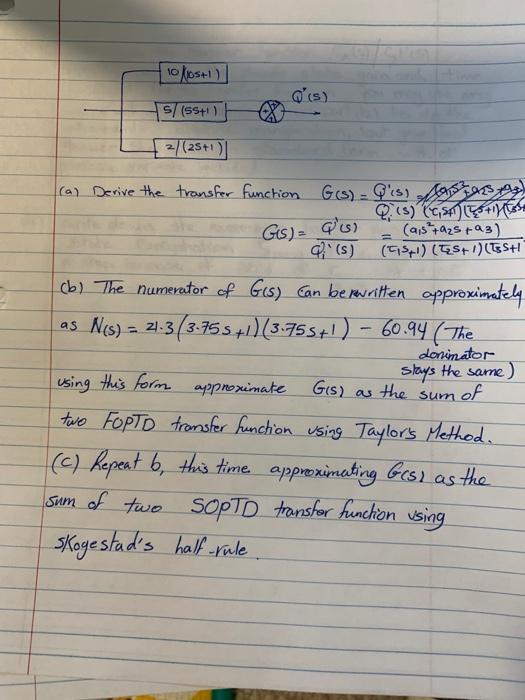 10/(10s+1)
Q'(s)
5/(5s+1)
2/(2s+1)
(a) Derive the transfer function G(s) = Q'(s)
Qi'(s)
G(s) = Q'(s) = (a1s²+a2s+a3)
Qi'(s) (τ1s+1)(τ2s+1)(τ3s+1
(b) The numerator of G(s) can be rewritten approximately
as N(s) = 21.3(3.75s+1)(3.75s+1) - 60.94 (The
donimator
stays the same)
using this form approximate G(s) as the sum of
two FOPTD transfer function using Taylor's Method.
(c) Repeat b, this time approximating G(s) as the
sum of two SOPTD transfer function using
Skogestad's half-rule.